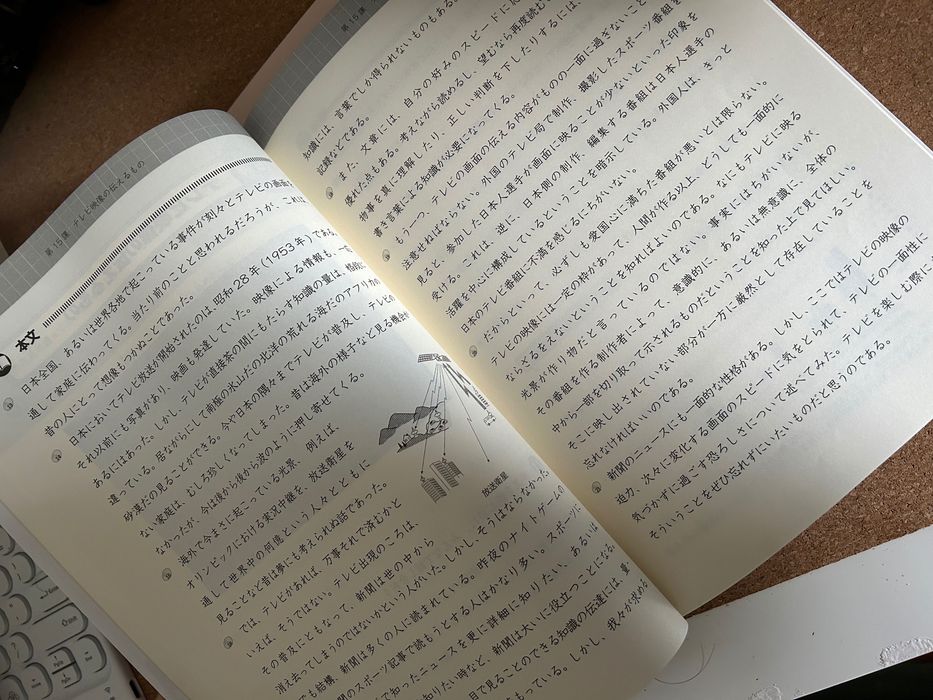 第15課 テレビ映像の伝えるもの
本文
日本全国、あるいは世界各地で起こっている事件が刻々とテレビの画面
通して家庭に伝わってくる。当たり前のことと思われるだろうが、これは
昔の人にとって想像もつかぬことであった。
日本においてテレビ放送が開始されたのは、昭和28年(1953年)であ
それ以前にも写真があり、映画も発達していた。映像による情報も、
あるにはあった。しかし、テレビが直接茶の間にもたらす知識の量は、
違っている。居ながらにして南極の氷山だの北洋の荒れる海だのアフリカの
砂漠だの見ることができる。今や日本の隅々までテレビが普及し、テレビの
ない家庭は、むしろ珍しくなってしまった。昔は海外の様子など見る機会
なかったが、今は後から後から波のように押し寄せてくる。
海外で今まさに起こっている光景、例えば
オリンピックにおける実況中継を、放送衛星を
通して世界中の何億という人々とともに
見ることなど昔は夢にも考えられぬ話であった。
では、テレビがあれば、万事それで済むかと
いえば、そうではない。テレビ出現のころは、
その普及にともなって、新聞は世の中から
消え去ってしまうのではないかという人がいた。しかし、そうはならなかった。
でも結構、新聞は多くの人に読まれている。昨夜のナイトゲームの
のスポーツ記事で読もうとする人はかなり多い。スポーツに
で知ったニュースを更に詳細に知りたい、ある
知りたい時など、新聞は大いに役立つことにな
目で見ることのできる知識の伝達には、
もっている。しかし、我々が求め
放送衛星
第15課
知識には、言葉でしか得られないものもある。
記録などである。
また、文章には、自分の好みのスピードに
優れた点もある。考えながら読めるし、望むなら再度読む
物事を真に理解したり、正しい判断を下したりするには、
書き言葉による知識が必要になってくる。
もう一つ、テレビの画面の伝える内容がものの一面に過ぎないこと
注意せねばならない。外国のテレビ局で制作、撮影したスポーツ番組を
見ると、参加した日本人選手が画面に映ることが少ないといった印象を
受ける。これは、逆に、日本側の制作、編集する番組は日本人選手の
活躍を中心に構成しているということを暗示している。外国人は、きっと
日本のテレビ番組に不満を感じるにちがいない。
だからといって、必ずしも愛国心に満ちた番組が悪いとは限らない。
テレビの映像には一定の枠があって、人間が作る以上、どうしても一面的に
ならざるをえないということを知ればよいのである。なにもテレビに映る
光景が作り物だと言っているのではない。事実にはちがいないが、
その番組を作る制作者によって、意識的に、あるいは無意識に、全体の
中から一部を切り取って示されるものだということを知った上で見てほしい。
そこに映し出されていない部分が一方に厳然として存在していることを
忘れなければいいのである。
新聞のニュースにも一面的な性格がある。しかし、ここではテレビの映像の
迫力、次々に変化する画面のスピードに気をとられて、テレビの一面性に
気づかずに過ごす恐ろしさについて述べてみた。テレビを楽しむ際に
そういうことをぜひ忘れずにいたいものだと思うのである。